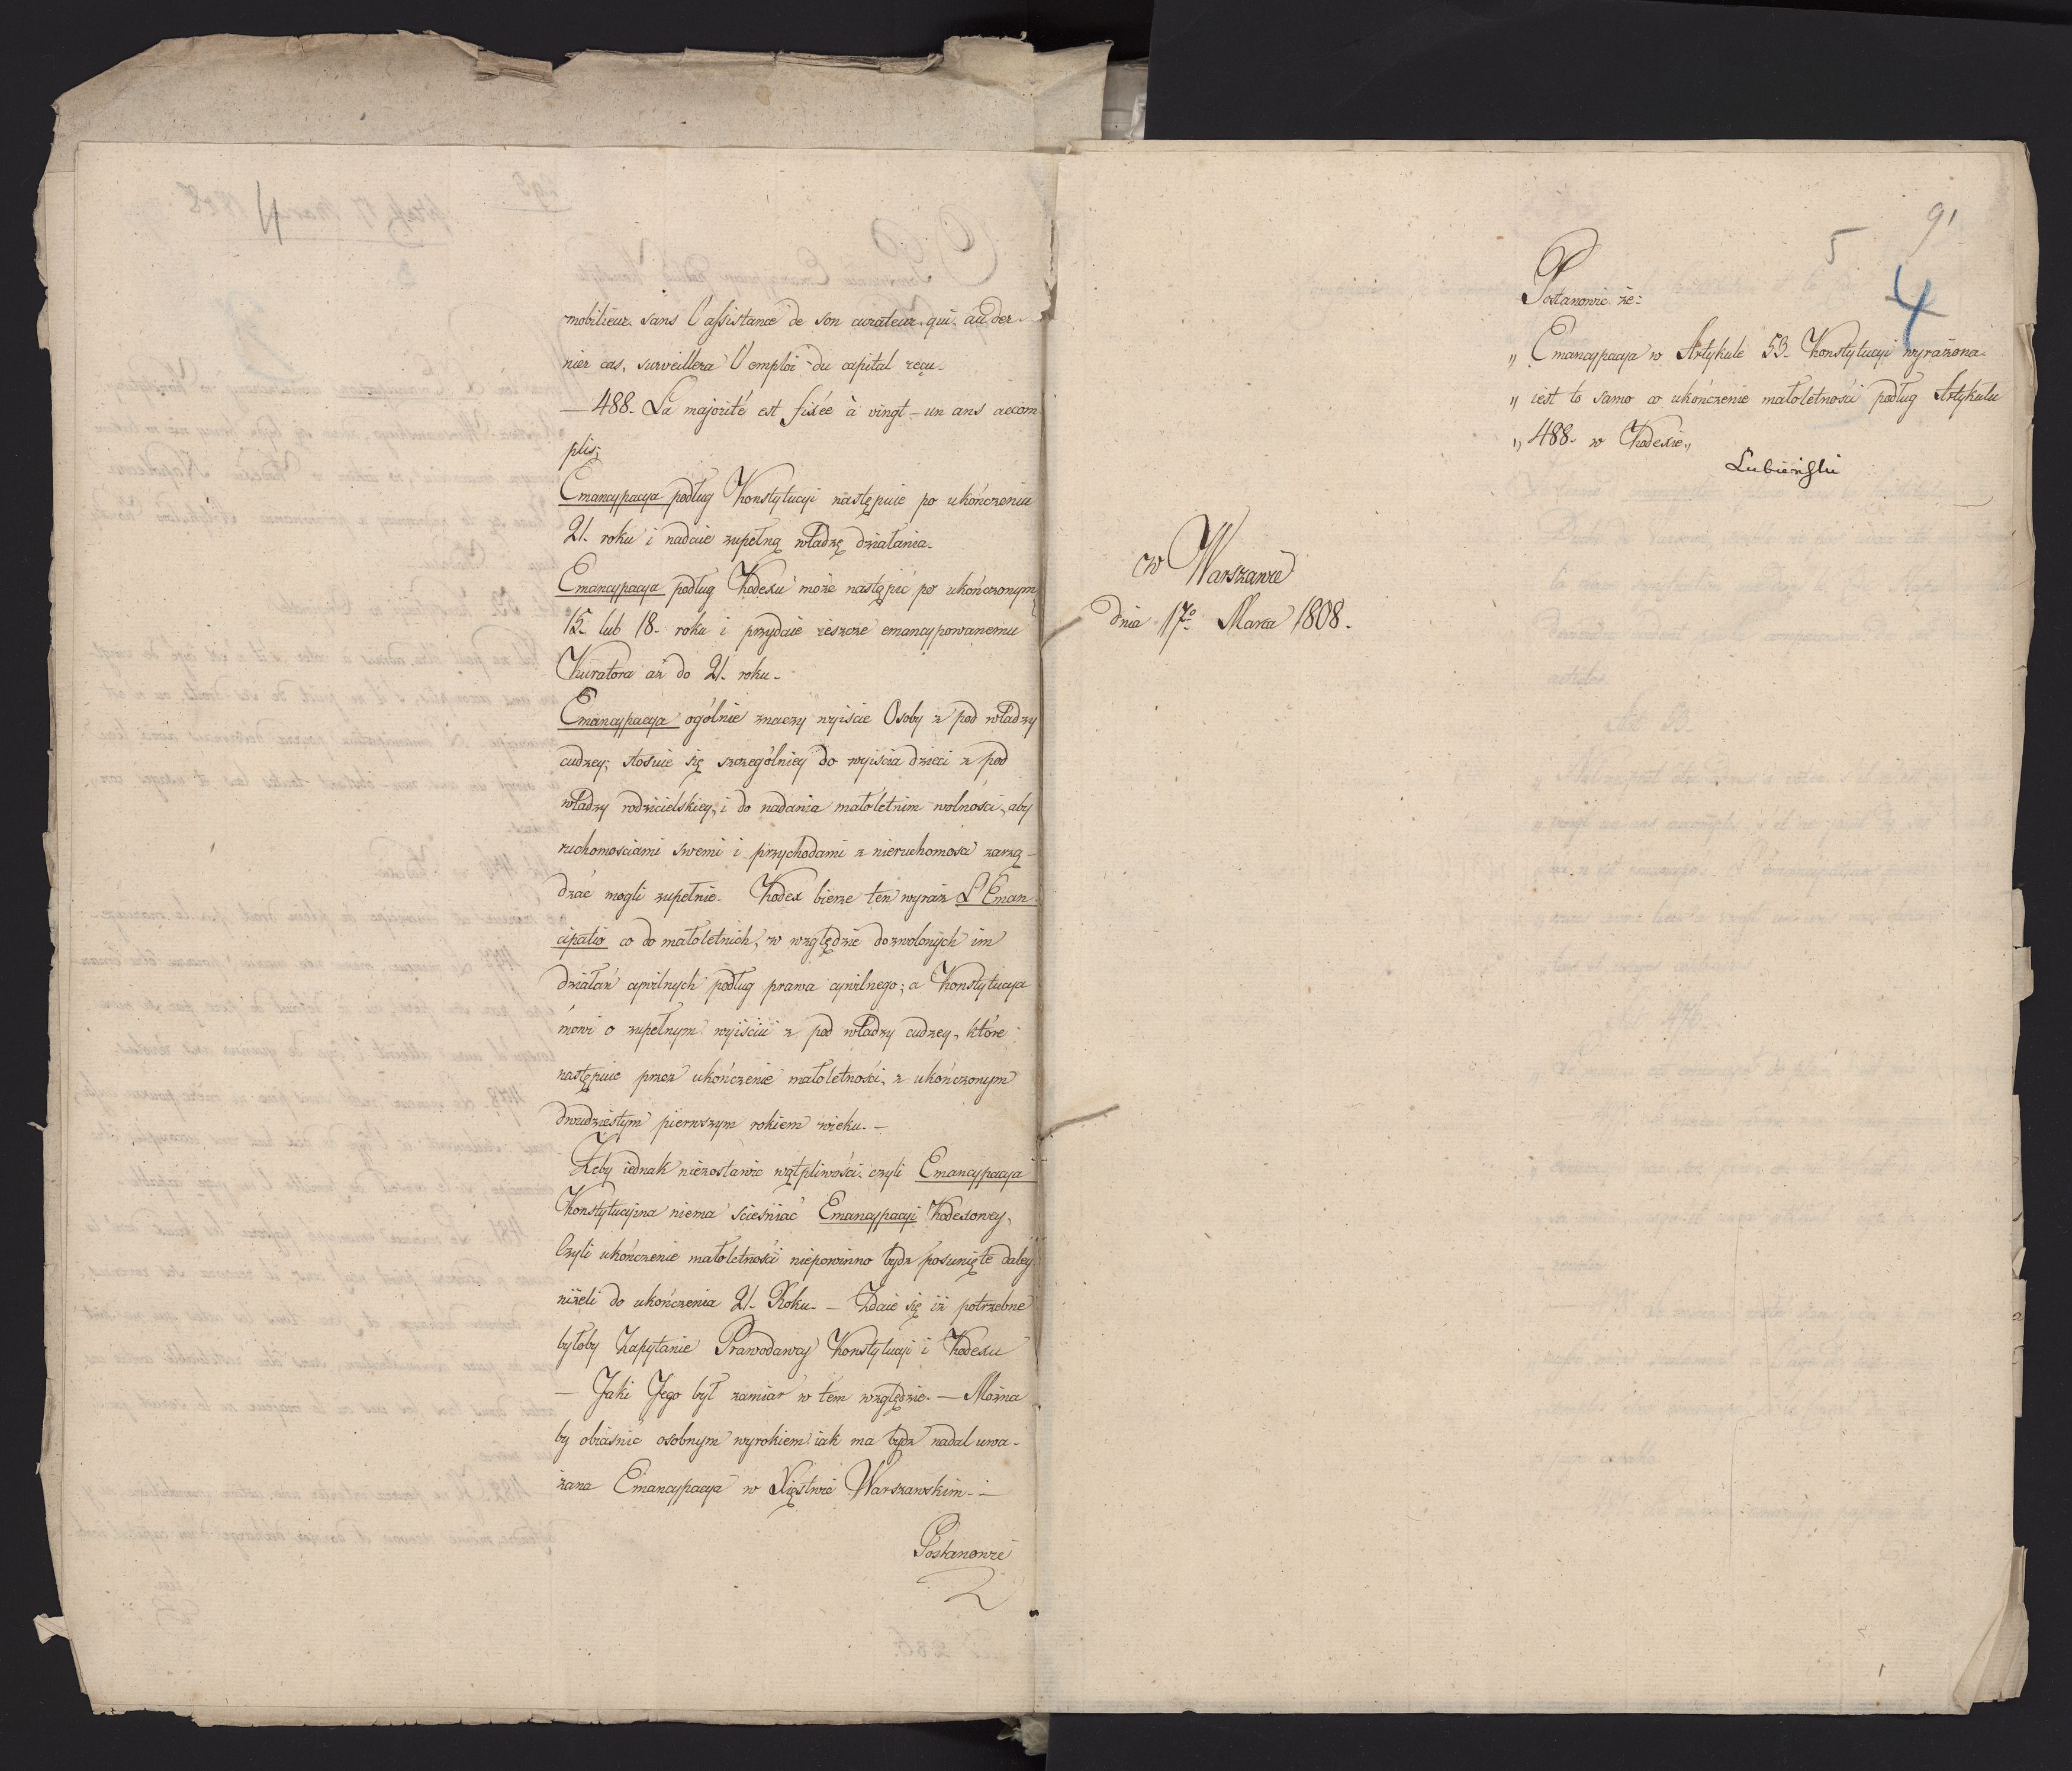 mobilieur sans l'assistance de son curateur qui au der-
nier cas, surveillera l'emploi du capital reçu.
— 488. La majorité est fixée à vingt-un ans accom
plis;
Emancypacya podług Konstytucyi następuie po ukończeniu
21. roku i nadaie zupełną władzę działania.
Emancypacya podług Kodexu może nastąpić po ukończonym
15. lub 18. roku i przydaie ieszcze emancypowanemu
Kuratora aż do 21. roku.
Emancypacya ogólnie znaczy wyiście Osoby z pod władzy
cudzey; stosuie się szczególniey do wyiścia dzieci z pod
władzy rodzicielskiey, i do nadania małoletnim wolności, aby
ruchomosciami swemi i przychodami z nieruchomości zarzą-
dzać mogli zupełnie. Kodex bierze ten wyraz L'Eman
cipatio co do małoletnich, w względzie dozwolonych im
działań cywilnych podług prawa cywilnego; a Konstytucya
mówi o zupełnym wyiściu z pod władzy cudzey, które
następuie przez ukończenie małoletności, z ukończonym
dwudziestym pierwszym rokiem wieku. —
Żeby iednak niezostawić wątpliwości czyli Emancypacya
Konstytucyina niema ścieśniać Emancypacyi Kodexowey,
Czyli ukończenie małoletności niepowinno bydź posunięte daley
niżeli do ukończenia 21. Roku. — Zdaie się iż potrzebne
byłoby Zapytanie Prawodawcy Konstytucyi i Kodexu
— Jaki Jego był zamiar w tém względzie. — Można
by obiaśnić osobnym wyrokiem iak ma bydź nadal uwa-
żana Emancypacya w Xięstwie Warszawskim. —
Postanowić
91
5
4
Postanowić że:
„ Emancypacya w Artykule 53. Konstytucyi wyrażona
„ iest to samo co ukończenie małoletności podług Artykułu
„ 488. w Kodexie„
Lubieński
w Warszawie
dnia 17o Marca 1808.